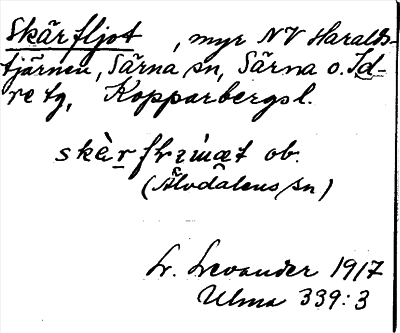 Skärfljot, myr NV Haralds-
tjärnen, Särna sn, Särna o. Id-
re tg, Kopparbergsl.
ob.
(Älvdalens sn)
L. Levander 1917
Ulma 339:3